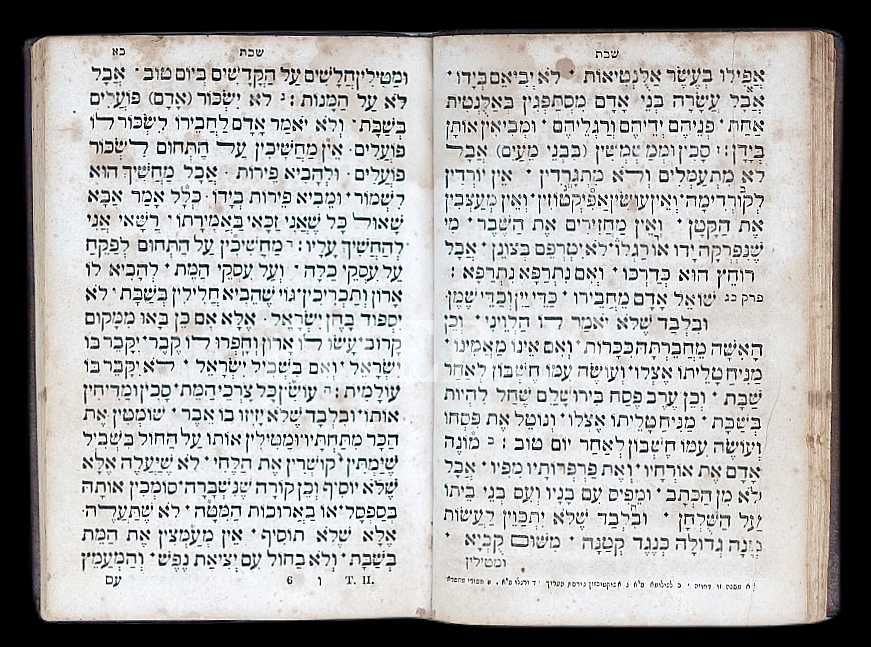 שבת
אפילו בעשר אלונטיאות · לא יביאם בידו ·
אבל עשרה בני אדם מסתפגין באלונטית
אחת · פניהם ידיהם ורגליהם · ומביאין אותן
בידן : סכין וממשמשין (בבני מעים) אבל
לא מתעמלים ולא מתגרדין · אין יורדין
לקורדימה · ואין עושין אפיקטוזין · ואין מעצבין
את הקטן · ואין מחזירים את השבר · מי
שנפרקה ידו או רגלו · לא יטרפם בצונן · אבל
רוחץ הוא כדרכו · ואם נתרפא נתרפא :
פרק כג שואל אדם מחבירו · כדי יין וכדי שמן ·
ובלבד שלא יאמר לו הלויני · וכן
האשה מחברתה ככרות · ואם אינו מאמינו ·
מניח טליתו אצלו · ועושה עמו חשבון לאחר
שבת · וכן ערב פסח בירושלם שחל להיות
בשבת · מניח טליתו אצלו · ונוטל את פסחו
ועושה עמו חשבון לאחר יום טוב : ב מונה
אדם את אורחיו · ואת פרפרותיו מפיו · אבל
לא מן הכתב · ומפיס עם בניו ועם בני ביתו
על השלחן · ובלבד שלא יתכוין לעשות
מנה גדולה כנגד קטנה · משום קוביא ·
ומטילין
שבת כא
ומטילין חלשים על הקדשים ביום טוב · אבל
לא על המנות : ג לא ישכור (אדם) פועלים
בשבת · ולא יאמר אדם לחבירו לשכור לו
פועלים · אין מחשיכין על התחום לשכור
פועלים · ולהביא פירות · אבל מחשיך הוא
לשמור · ומביא פירות בידו · כלל אמר אבא
שאול כל שאני זכאי באמירתו · רשאי אני
להחשיך עליו : ד מחשיכין על התחום לפקח
על עסקי כלה · ועל עסקי המת · להביא לו
ארון ותכריכין · גוי שהביא חלילין בשבת · לא
יספוד בהן ישראל · אלא אם כן באו ממקום
קרוב · עשו לו ארון וחפרו לו קבר · יקבר בו
ישראל · ואם בשביל ישראל · לא יקבר בו
עולמית : ה עושין כל צרכי המת · סכין ומדיחין
אותו · ובלבד שלא יזיזו בו אבר · שומטין את
הכר מתחתיו · ומטילין אותו על החול בשביל
שימתין · קושרין את הלחי · לא שיעלה אלא
שלא יוסיף · וכן קורה שנשברה · סומכין אותה
בספסל · או בארוכות המטה · לא שתעלה ·
אלא שלא תוסיף · אין מעמצין את המת
בשבת · ולא בחול עם יציאת נפש · והמעמץ
T. II. ו 6 עם